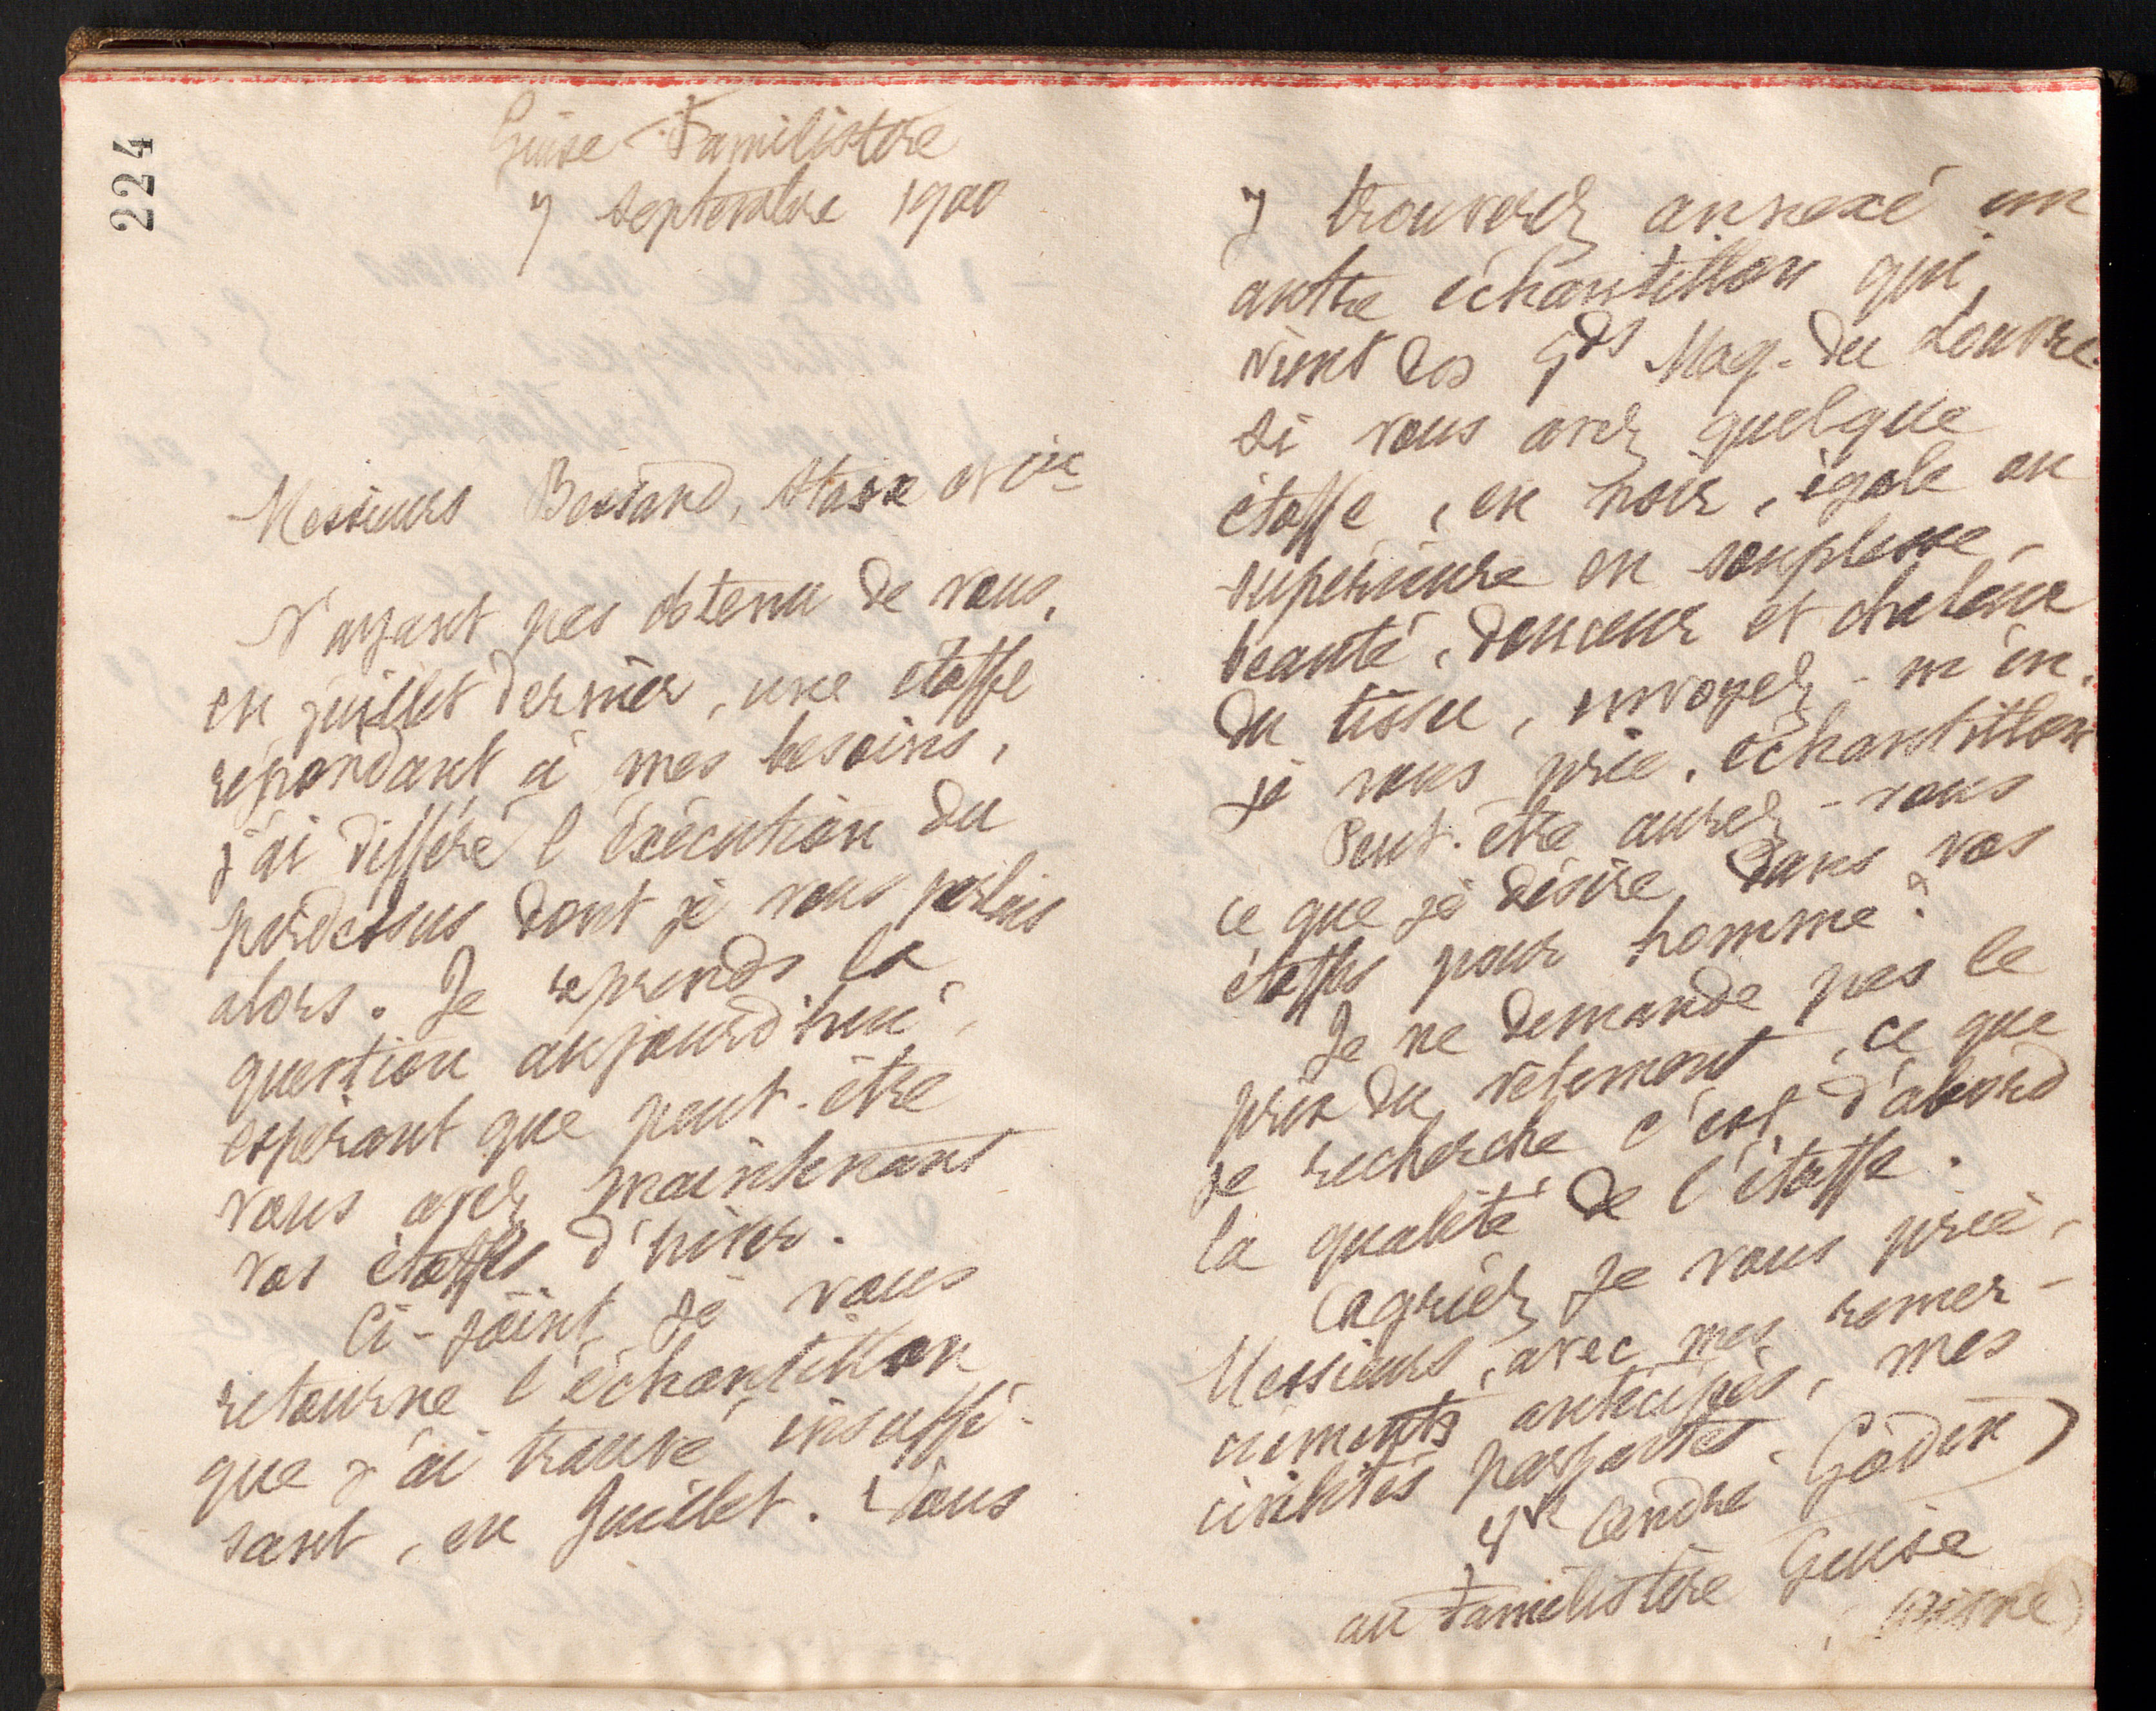 224
Guise Familistère
7 septembre 1900
Messieurs Bessand, Stasse et Cie
N'ayant pas obtenu de vous,
en juillet dernier, une étoffe
répondant à mes besoins,
j'ai différé l'exécution du
pardessus dont je vous parlais
alors. Je reprends la
question aujourd'hui,
espérant que peut-être
vous avez maintenant
vos étoffes d'hiver.
Ci-joint je vous
retourne l'échantillon
que j'ai trouvé insuffi-
sant, en Juillet. Vous
y trouverez annexé un
autre échantillon qui
vient des Gds Mag. du Louvre.
Si vous avez quelque
étoffe, en noir, égale ou
supérieure en souplesse,
beauté, douceur et chaleur
du tissu, envoyez-m'en,
je vous prie, échantillon
Peut-être aurez-vous
ce que je désire dans vos
étoffes pour homme?
Je ne demande pas le
prix du vêtement, ce que
je recherche c'est d'abord
la qualité de l'étoffe.
Agréez je vous prie,
Messieurs, avec mes remer-
ciements anticipés, mes
civilités parfaites.
Vve André Godin
au Familistère Guise
(Aisne)